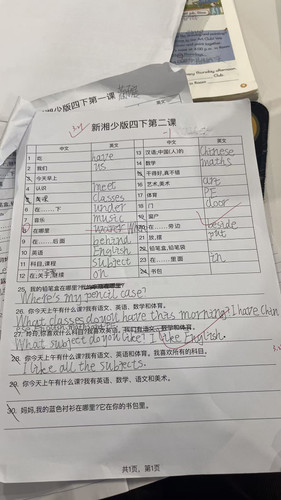 新湘少版四下第一课
新湘少版四下第二课
中文 英文 中文 英文
1 吃 have 13 汉语;中国(人)的 Chinese
2 我们 us 14 数学 maths
3 今天早上 15 干得好,真不错
4 认识 meet 16 艺术,美术 art
5 classes 17 体育 PE
6 在……下 under 18 门 door
7 音乐 music 19 窗户
8 在哪里 20 在……旁边 beside
9 在……后面 behind 21 放,摆 put
10 英语 English 22 铅笔盒,铅笔袋
11 科目,课程 subject 23 在……里面 in
12 on 24 书包
25. 我的铅笔盒在哪里?
Where's my pencil case?
26. 你今天上午有什么课?我有语文、英语、数学和体育。
What classes do you have this morning? I have Chin
27. 你喜欢什么科目?我喜欢英语。
What subject do you like? I like English.
28. 你今天上午有什么课?我有语文、英语和体育。我喜欢所有的科目。
I like all the subjects.
29. 你今天上午有什么课?我有英语、数学、语文和美术。
30. 妈妈,我的蓝色衬衫在哪里?它在你的书包里。
共1页，第1页